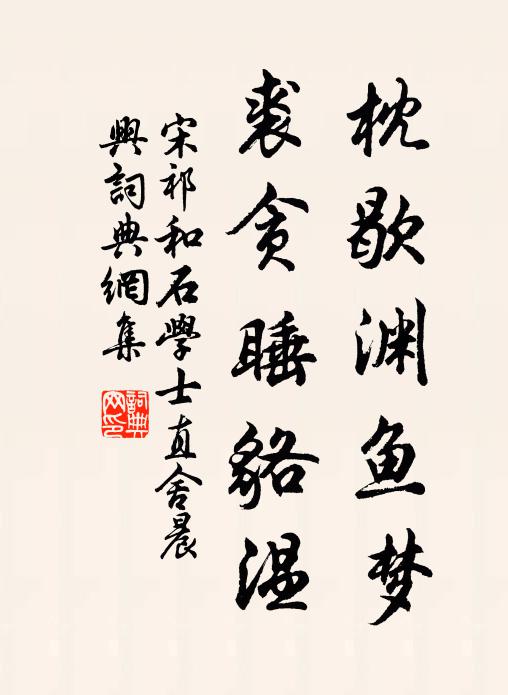 枕歇渊鱼梦
裘贪睡貉温
宋祁和石學士直舍晨
興詞典網集
詞典
网印